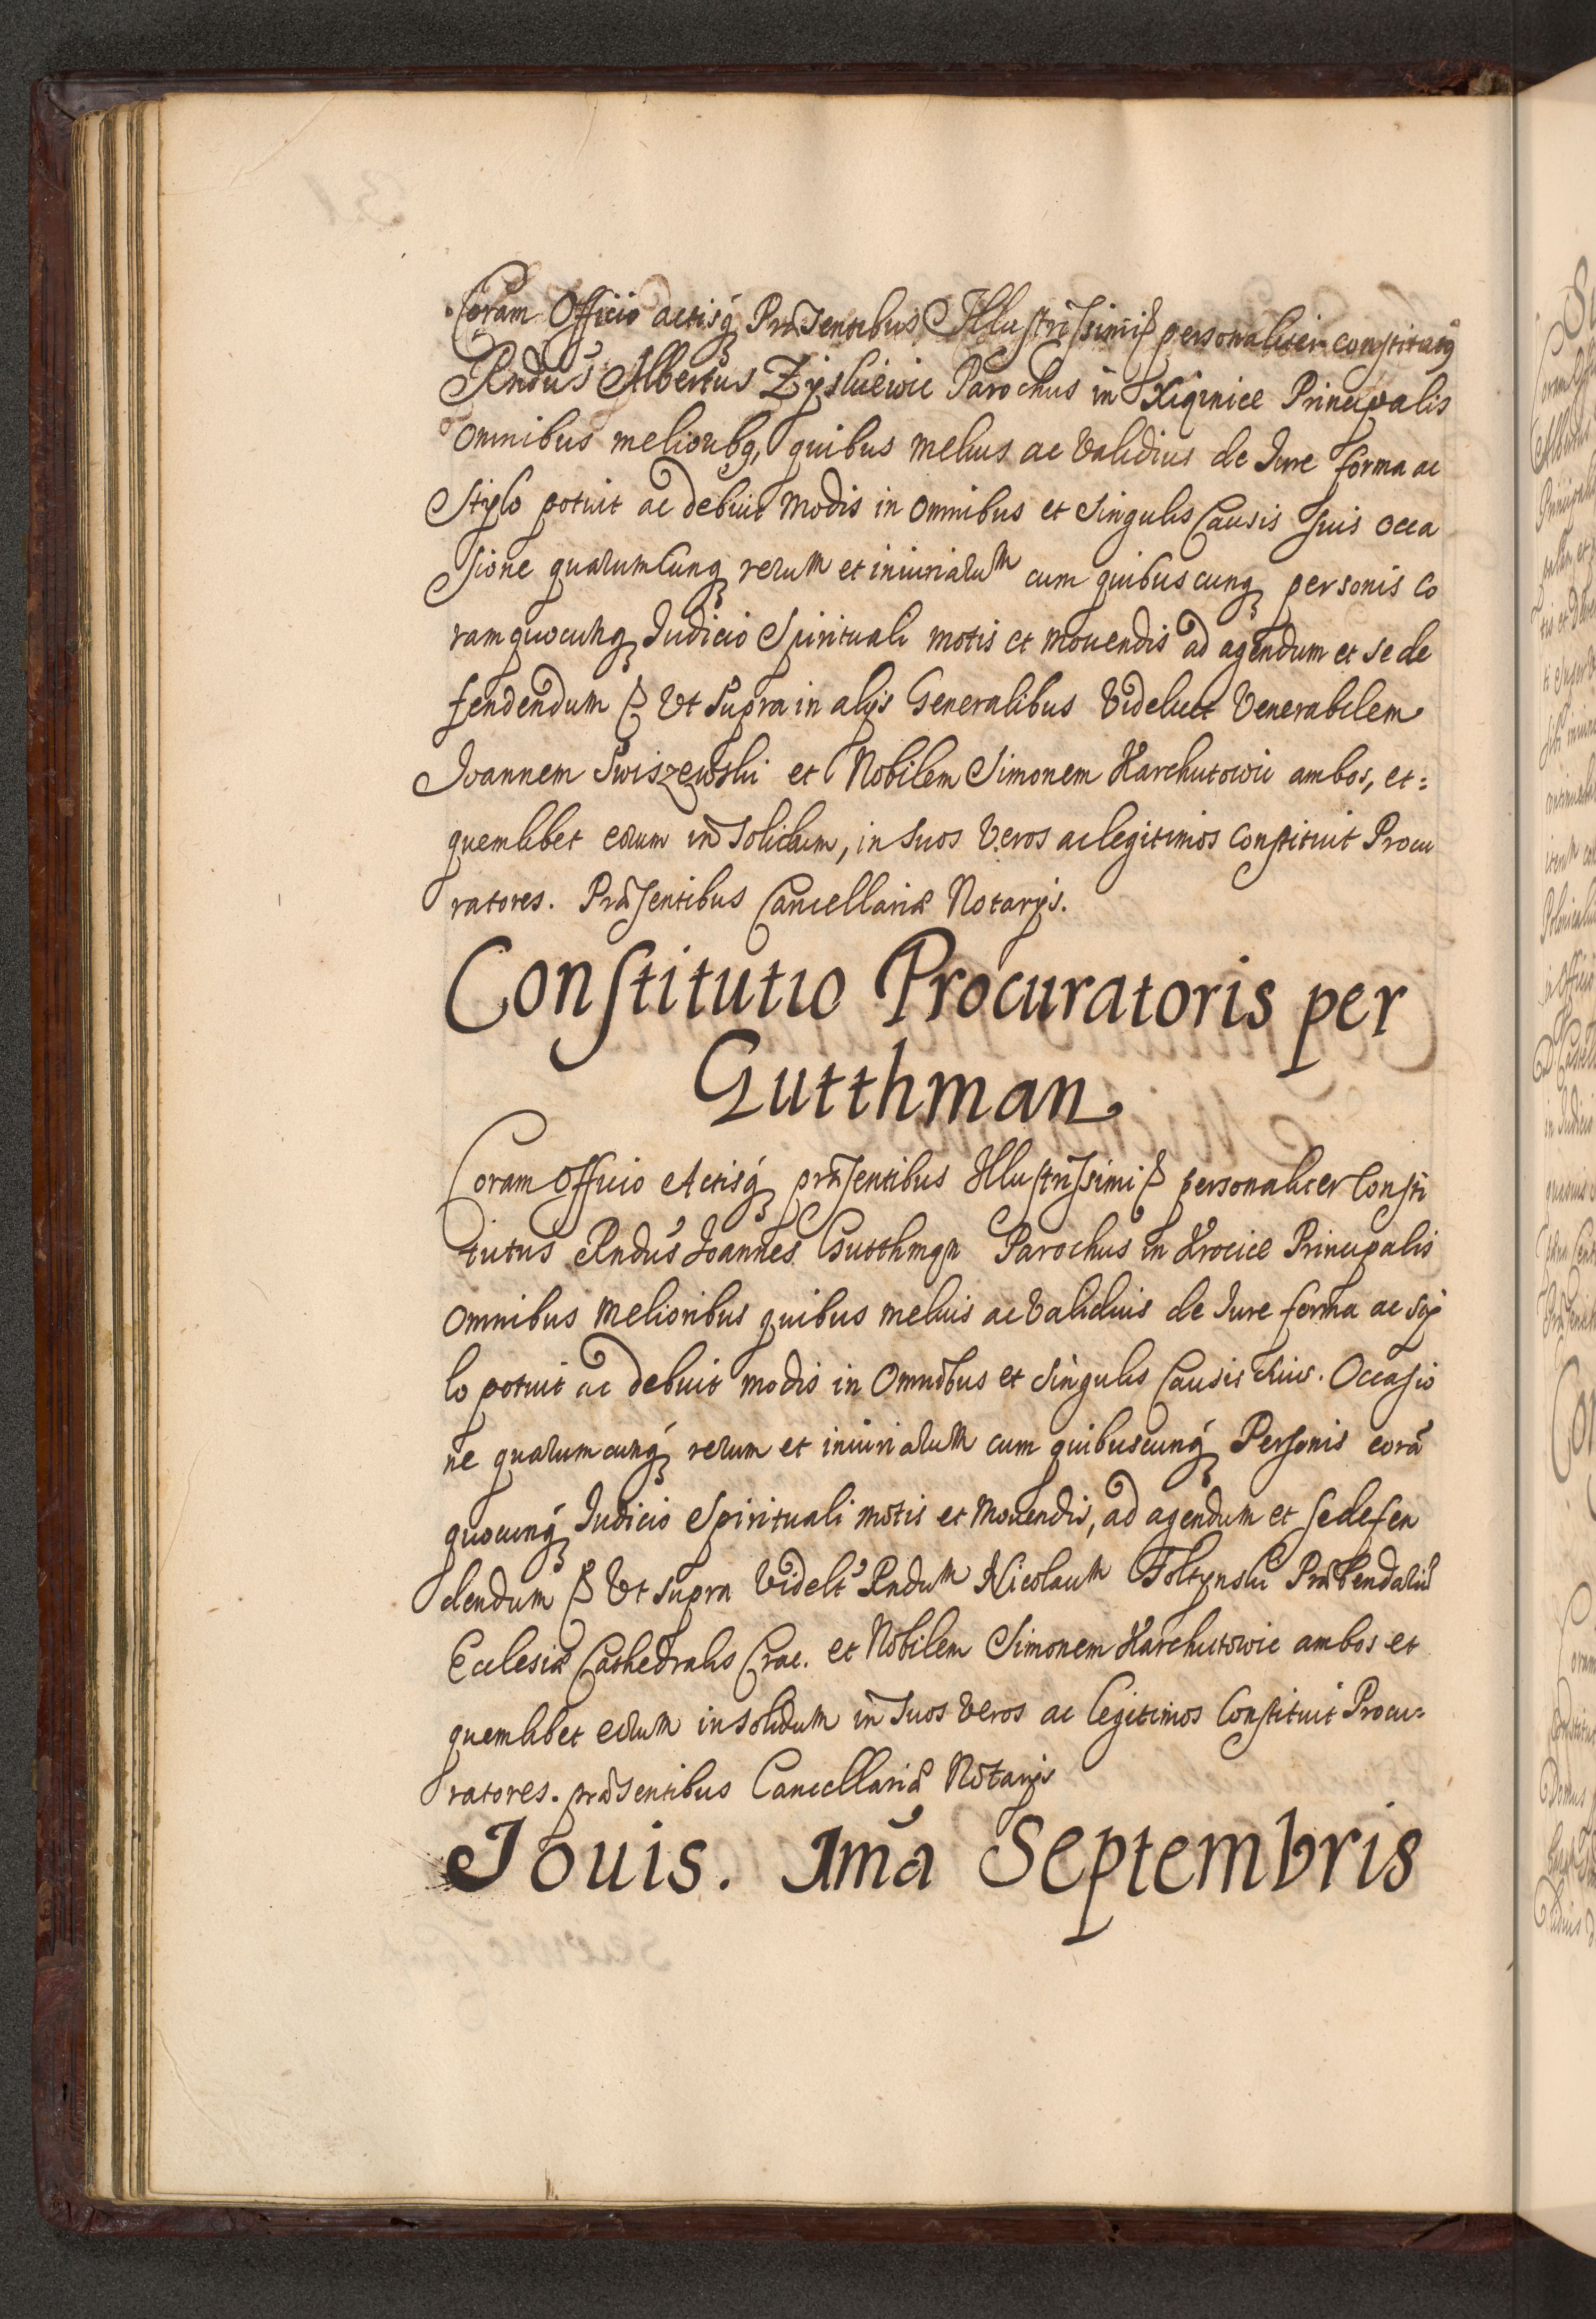 Coram Officio actisq́ Præsentibus Illustrissimi personaliter constitutꝯ
Rndus Albertus Zysluewic Parochus in Xiginice Principalis
omnibus melioribꝯ, quibus melius ac validius de Iure forma ac
Stylo potuit ac debuit modis in omnibus et Singulis Causis suis occa
sione quarumcunq rerum et iniuriarum cum quibuscunq personis co
ram quocunq Iudicio Spirituali motis et mouendis ad agendum et se de
fendendum Vt supra in alijs Generalibus Videlicet Venerabilem
Ioannem Swiszewski et Nobilem Simonem Harchutowic ambos, et:
quemlibet eorum in solidum, in suos Veros ac legitimos constituit Procu
ratores. Præsentibus Cancellariæ Notarijs.
Constitutio Procuratoris per
Gutthman
Coram Officio Actisq́ præsentibus Illustrissimi personaliter Consti
tutus Rndus Ioannes Gutthman Parochus in Krocice Principalis
omnibus melioribus quibus melius ac Validius de Iure forma ac Sty
lo potuit ac debuit modis in Omnibus et Singulis Causis suis. Occasio
ne quarumcunq́ rerum et iniuriarum cum quibuscunq́ Personis corã
quocunq́ Iudicio Spirituali motis et Mouendis, ad agendum et se defen
dendum Vt supra Videlt Rndum Nicolaum Foltynski Præbendariũ
Ecclesiæ Cathedralis Crac. et Nobilem Simonem Harchutowic ambos et
quemlibet eorum in solidum in suos Veros ac legitimos Constituit Procu=
ratores. præsentibus Cancellariæ Notarijs
Iouis. Imã Septembris